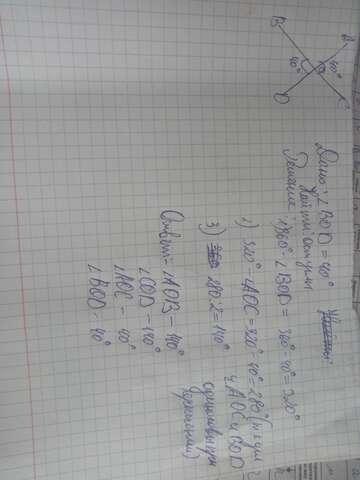 B
A
40°
40°
O
D
C
Дано: ∠BOD = 40°
Найти:
Решение
1) 360° - ∠BOD = 360° - 40° = 320°
2) 320° - ∠AOC = 320° - 40° = 280°
∠AOC и ∠BOD
3) 280:2 = 140°
Ответ - ∠AOB - 140°
∠COD - 140°
∠AOC - 40°
∠BOD - 40°